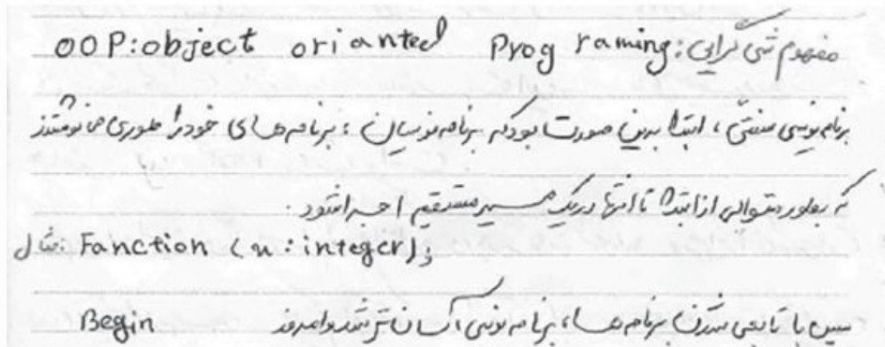 مفهوم شی گرایی: OOP: object orianted Prog raming
برنامه نویسی سنتی، ابتدا بدین صورت بود که برنامه نویسان، برنامه های خود را طوری می نوشتند
که بطور متوالی از ابتدا تا انتها در یک مسیر مستقیم اجرا شود.
مثل: Fanction (n: integer);
سپس با تابعی شدن برنامه ها، برنامه نویسی آسان تر شد و امروز Begin